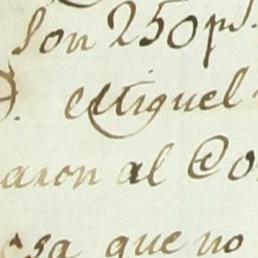 Son 250 p.s
Miguel
aron al Co
esa que no